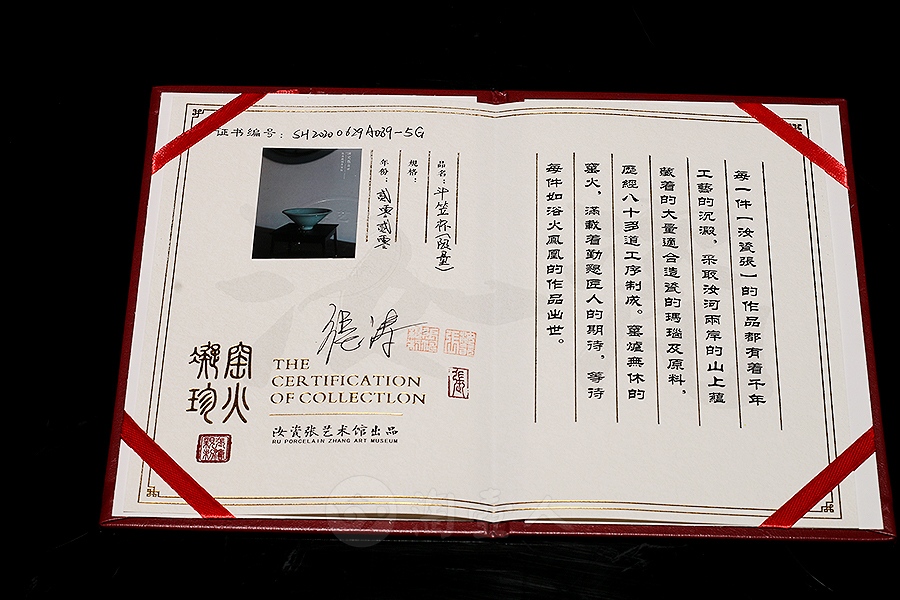 证书编号：SH20200629A089-5G
品名：斗笠杯(限量)
規格：
年份：贰零贰零
德涛
窑火
凝珍
THE
CERTIFICATION
OF COLLECTLON
汝瓷张艺术馆出品
RU PORCELAIN ZHANG ART MUSEUM
每一件(汝瓷張)的作品都有着千年
工藝的沉澱，采取汝河兩岸的山上蘊
藏着的大量適合造瓷的瑪瑙及原料，
歷經八十多道工序制成。窯爐無休的
窯火，滿載着勤懇匠人的期待，等待
每件如浴火鳳凰的作品出世。